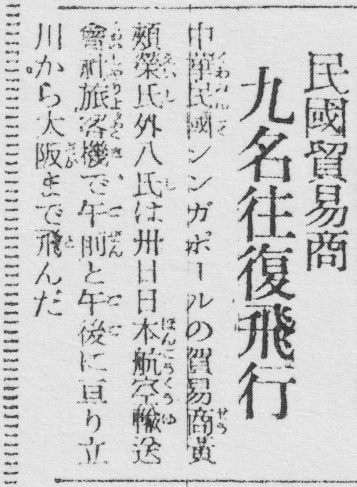 民國貿易商
九名往復飛行
中華民國シンガポールの貿易商黄
頰榮氏外八氏は卅日日本航空輸送
會社旅客機で午前と午後に亘り立
川から大阪まで飛んだ